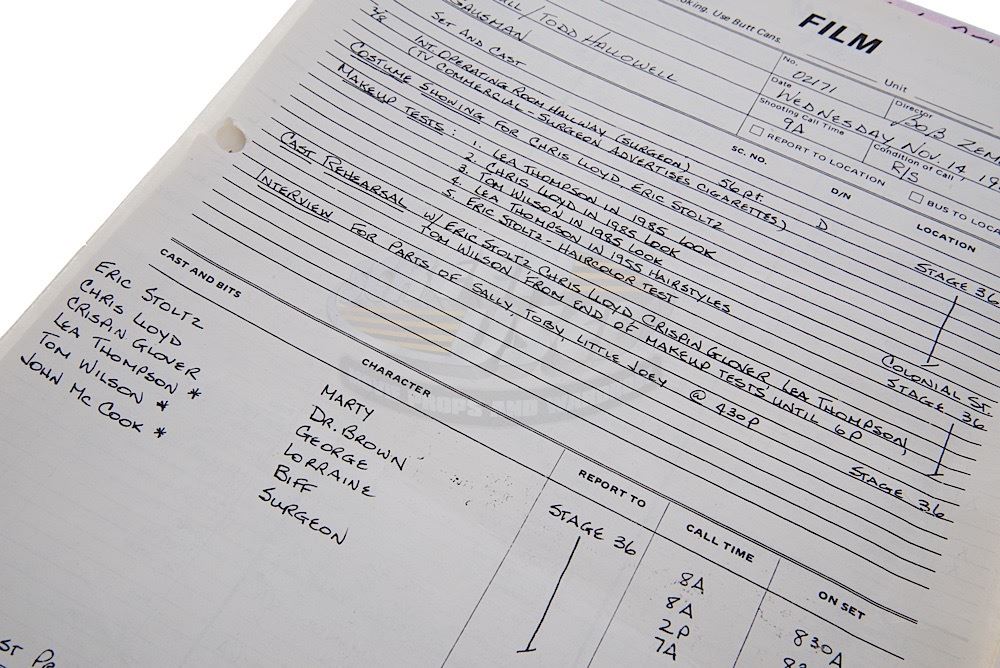 oking. Use Butt Cans.
FILM
ALL / TODD HALLOWELL
GAUSMAN
No. 02171
Unit
Date WEDNESDAY, NOV. 14, 19
Director BOB ZEME
Shooting Call Time 9A
Condition of Call R/S
REPORT TO LOCATION
BUS TO LOCA
3/8
SET AND CAST
SC. NO.
D/N
LOCATION
INT OPERATING ROOM HALLWAY (SURGEON) 56 PT. D STAGE 36
(TV COMMERCIAL - SURGEON ADVERTISES CIGARETTES)
COSTUME SHOWING FOR CHRIS LLOYD, ERIC STOLTZ
MAKEUP TESTS: 1. LEA THOMPSON IN 1985 LOOK
2. CHRIS LLOYD IN 1985 LOOK
3. TOM WILSON IN 1985 LOOK
4. LEA THOMPSON IN 1955 HAIRSTYLES
5. ERIC STOLTZ - HAIRCOLOR TEST
COLONIAL ST.
CAST REHEARSAL W/ ERIC STOLTZ, CHRIS LLOYD, CRISPIN GLOVER, LEA THOMPSON, STAGE 36
TOM WILSON FROM END OF MAKEUP TESTS UNTIL 6P
INTERVIEW FOR PARTS OF SALLY, TOBY, LITTLE JOEY @ 430P STAGE 36
CAST AND BITS
CHARACTER
REPORT TO
CALL TIME
ON SET
ERIC STOLTZ MARTY STAGE 36 8A 830A
CHRIS LLOYD DR. BROWN 8A
CRISPIN GLOVER GEORGE 2P
LEA THOMPSON * LORRAINE 7A
TOM WILSON * BIFF
JOHN MC COOK * SURGEON